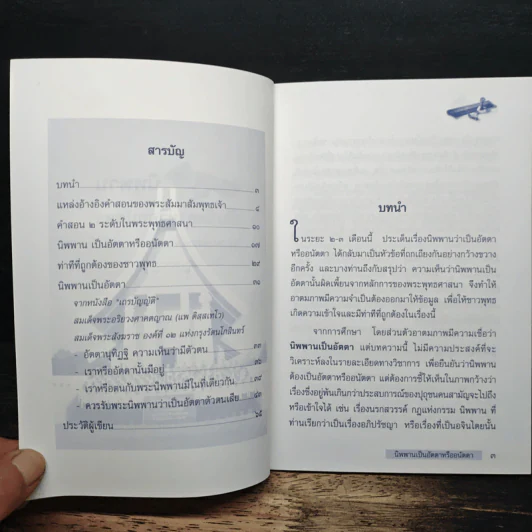 สารบัญ
บทนำ ๓
แหล่งอ้างอิงคำสอนของพระสัมมาสัมพุทธเจ้า ๘
คำสอน ๒ ระดับในพระพุทธศาสนา ๑๐
นิพพาน เป็นอัตตาหรืออนัตตา ๑๗
ท่าทีที่ถูกต้องของชาวพุทธ ๒๙
นิพพานเป็นอัตตา ๓๑
จากหนังสือ "เถรบัญญัติ"
สมเด็จพระอริยวงศาคตญาณ (แพ ติสฺสเทโว)
สมเด็จพระสังฆราช องค์ที่ ๑๒ แห่งกรุงรัตนโกสินทร์
- อัตตานุทิฏฐิ ความเห็นว่ามีตัวตน
- เราหรืออัตตานั้นมีอยู่
- เราหรือตนกับพระนิพพานมีในที่เดียวกัน
- ควรรับพระนิพพานว่าเป็นอัตตาตัวตนเสีย
ประวัติผู้เขียน ๖๕
บทนำ
ในระยะ ๒-๓ เดือนนี้ ประเด็นเรื่องนิพพานว่าเป็นอัตตา
หรืออนัตตา ได้กลับมาเป็นหัวข้อที่ถกเถียงกันอย่างกว้างขวาง
อีกครั้ง และบางท่านถึงกับสรุปว่า ความเห็นว่านิพพานเป็น
อัตตานั้นผิดเพี้ยนจากหลักการของพระพุทธศาสนา จึงทำให้
อาตมภาพมีความจำเป็นต้องออกมาให้ข้อมูล เพื่อให้ชาวพุทธ
เกิดความเข้าใจและมีท่าทีที่ถูกต้องในเรื่องนี้
จากการศึกษา โดยส่วนตัวอาตมภาพมีความเชื่อว่า
นิพพานเป็นอัตตา แต่บทความนี้ ไม่มีความประสงค์ที่จะ
วิเคราะห์ลงในรายละเอียดทางวิชาการ เพื่อยืนยันว่านิพพาน
ต้องเป็นอัตตาหรืออนัตตา แต่ต้องการชี้ให้เห็นในภาพกว้างว่า
เรื่องซึ่งอยู่พ้นเกินกว่าประสบการณ์ของปุถุชนคนสามัญจะไปถึง
หรือเข้าใจได้ เช่น เรื่องนรกสวรรค์ กฎแห่งกรรม นิพพาน ที่
ท่านเรียกว่าเป็นเรื่องอภิปรัชญา หรือเรื่องที่เป็นอจินไตยนั้น
นิพพานเป็นอัตตาหรืออนัตตา ๓